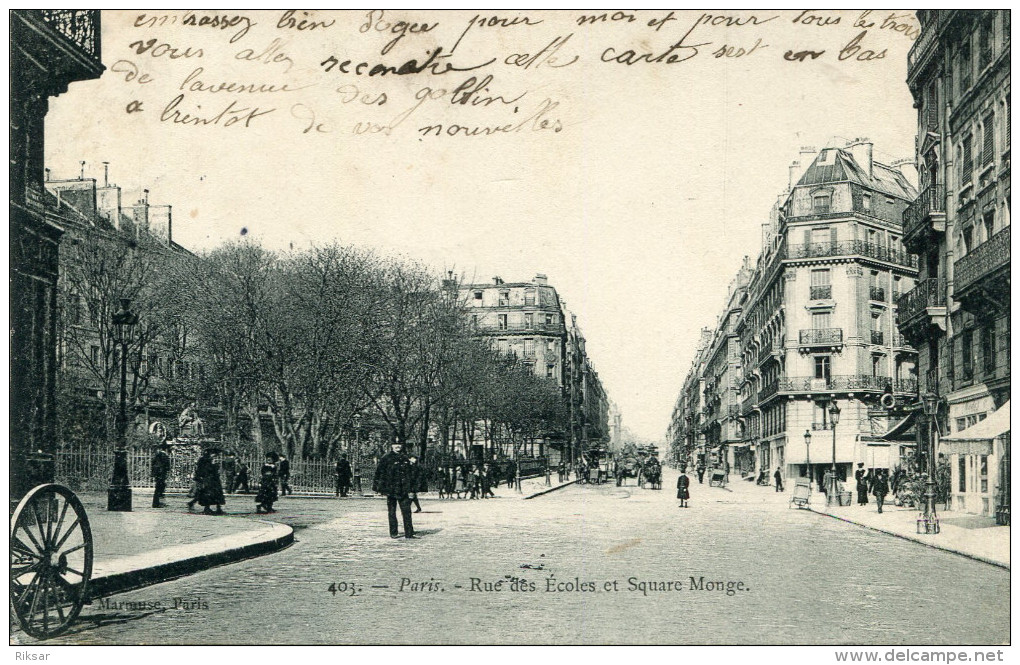 embrassez bien Rogee pour moi et pour tous les trois
vous allez reconaitre cette carte sest en bas
de lavenue des goblin
a bientot de vos nouvelles
403. — Paris. - Rue des Écoles et Square Monge.
Marmuse, Paris
Riksar
www.delcampe.net